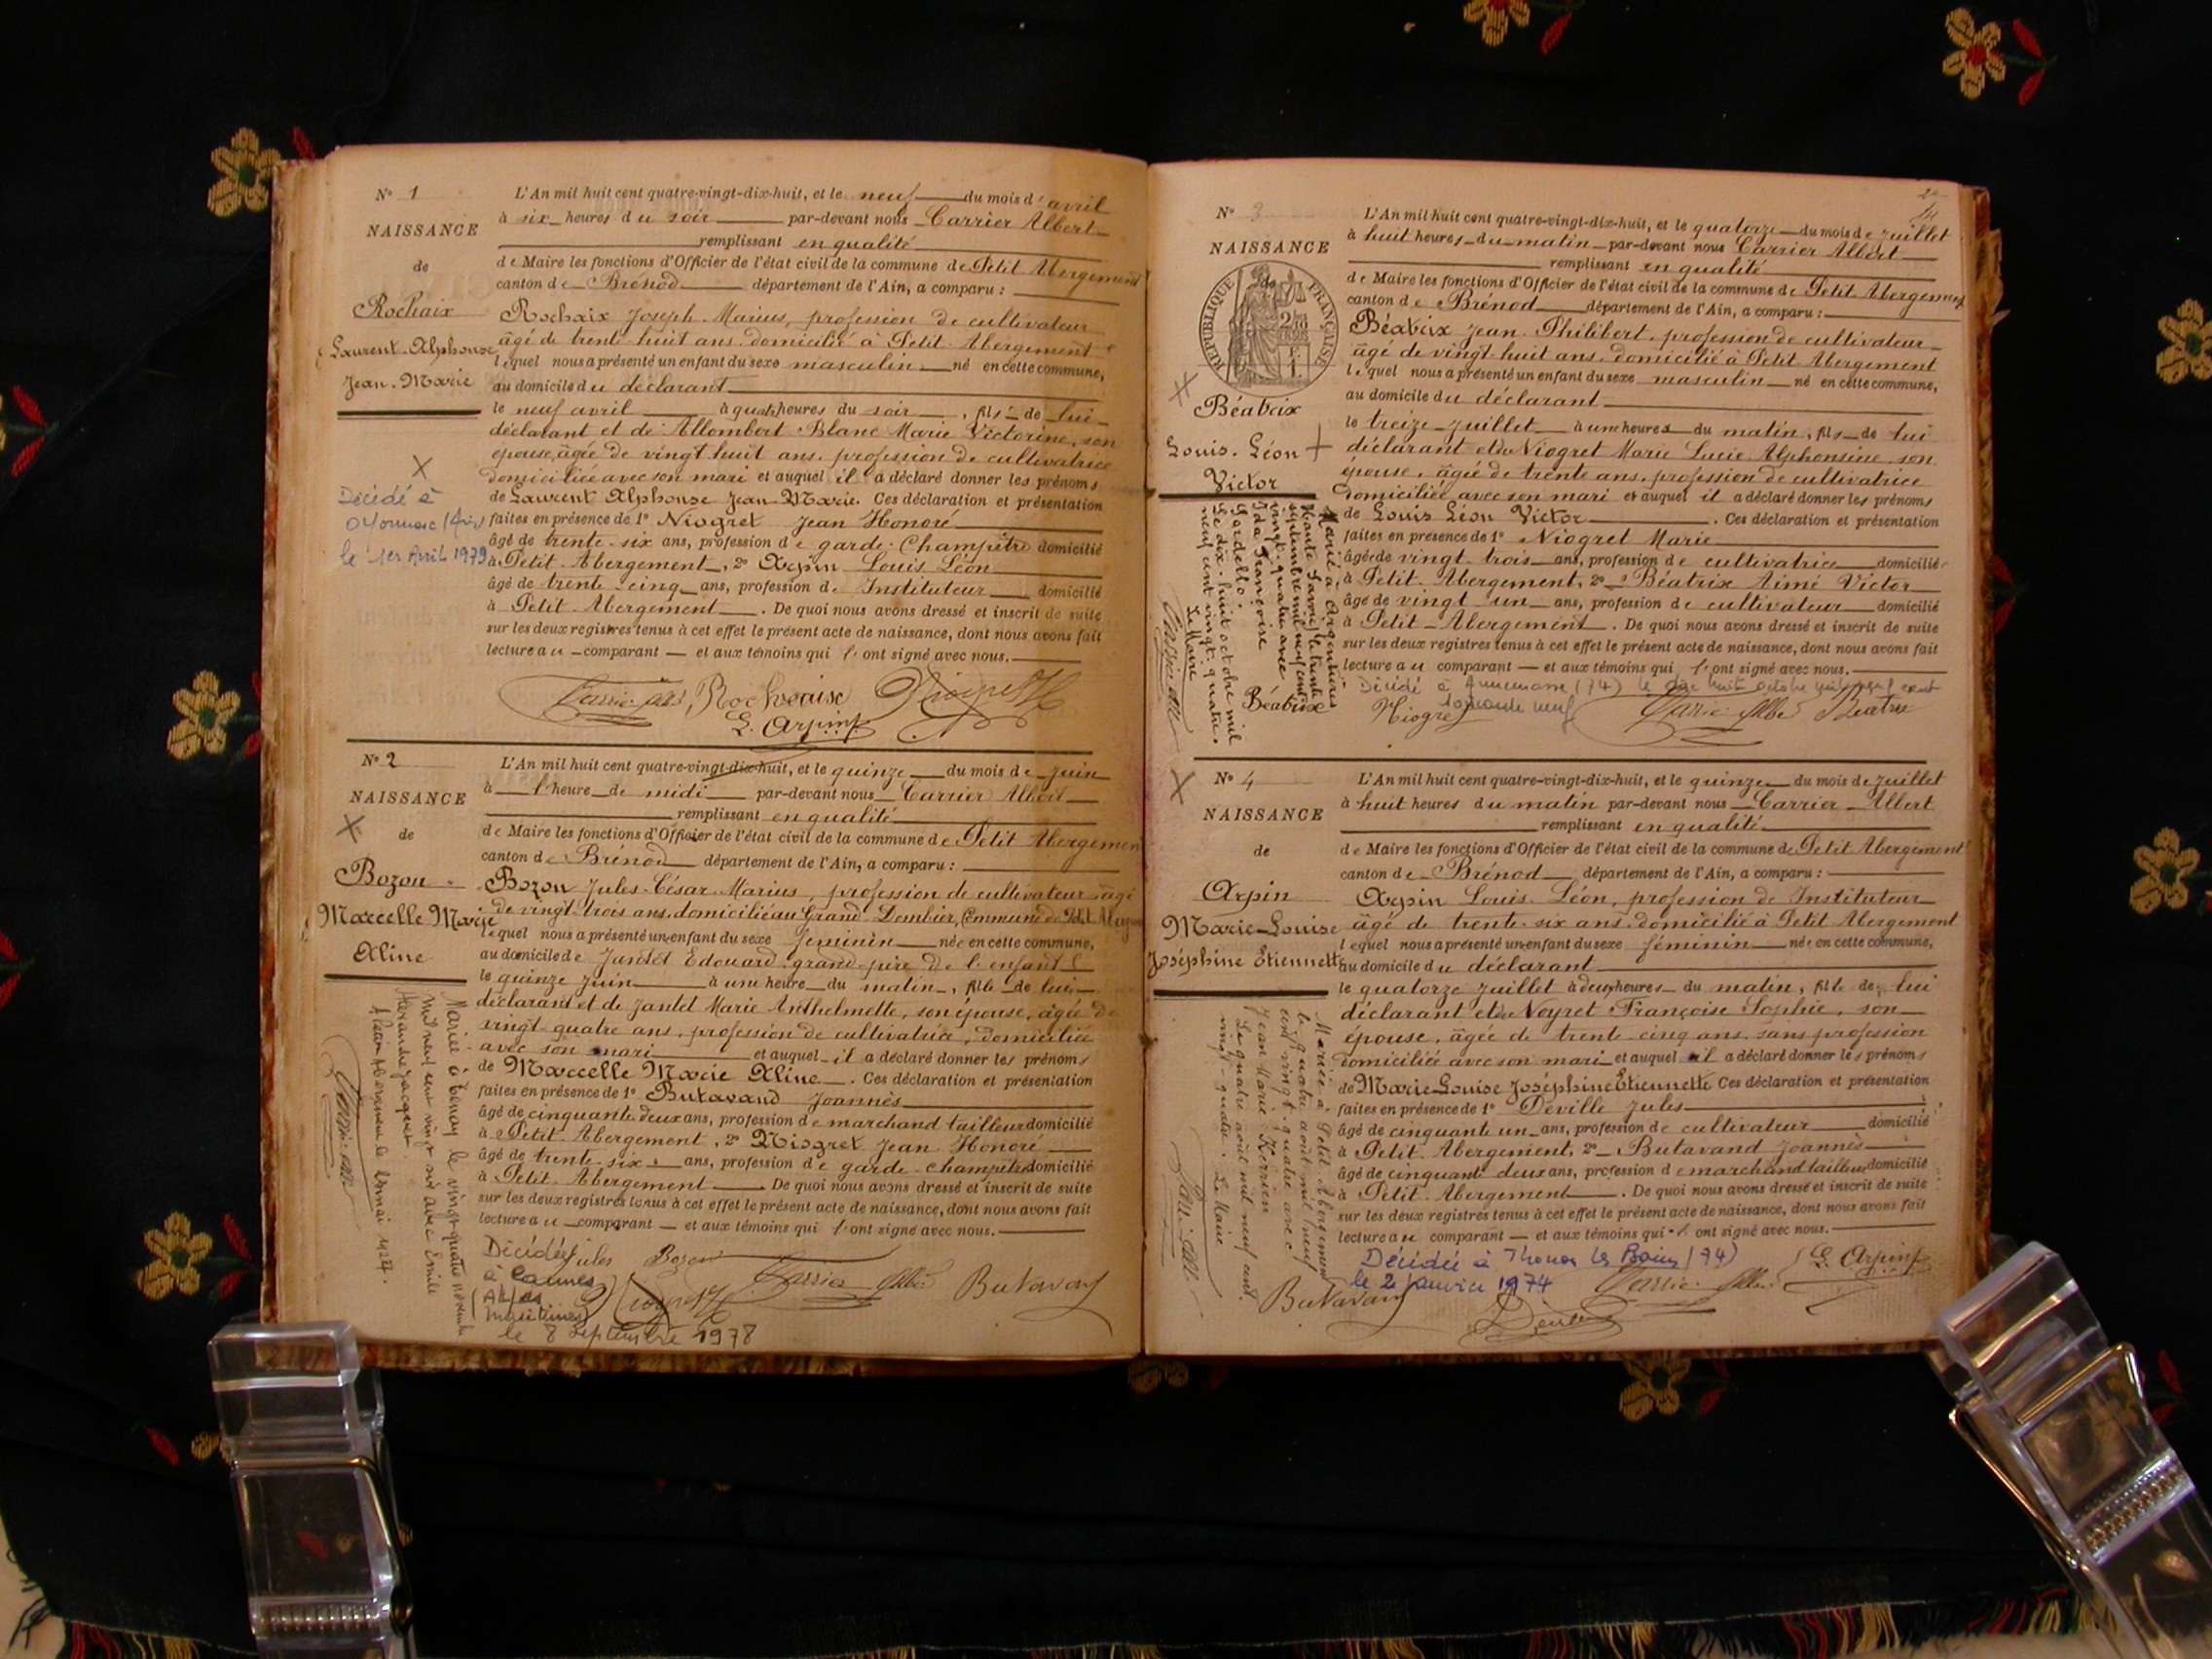 N° 1
NAISSANCE
de
Rochaix
Laurent-Alphonse
Jean-Marie
X
Décédé à
Oyonnax (Ain)
le 1er Avril 1979
L'An mil huit cent quatre-vingt-dix-huit, et le neuf du mois d'avril
à six heures du soir par-devant nous Carrier Albert
remplissant en qualité
de Maire les fonctions d'Officier de l'état civil de la commune de Petit Abergement
canton de Brénod département de l'Ain, a comparu :
Rochaix Joseph Marius, profession de cultivateur
âgé de trente huit ans domicilié à Petit Abergement
lequel nous a présenté un enfant du sexe masculin né en cette commune,
au domicile du déclarant
le neuf avril à quatre heures du soir, fils de lui
déclarant et de Allombert Blanc Marie Victorine, son
épouse, âgée de vingt huit ans, profession de cultivatrice
domiciliée avec son mari et auquel il a déclaré donner les prénoms
de Laurent Alphonse Jean-Marie. Ces déclaration et présentation
faites en présence de 1° Niogret Jean Honoré
âgé de trente-six ans, profession de garde-Champêtre domicilié
à Petit-Abergement, 2° Arpin Louis Léon
âgé de trente cinq ans, profession d' Instituteur domicilié
à Petit-Abergement. De quoi nous avons dressé et inscrit de suite
sur les deux registres tenus à cet effet le présent acte de naissance, dont nous avons fait
lecture au comparant et aux témoins qui l'ont signé avec nous.
Rochaix
L. Arpin
N° 2
NAISSANCE
X de
Bozon
Marcelle Marie
Aline
Mariée à Bénay le vingt quatre novembre
mil neuf cent vingt six avec Emile
Alexandre Jacquet.
L'An mil huit cent quatre-vingt-dix-huit, et le quinze du mois de juin
à l'heure de midi par-devant nous Carrier Albert
remplissant en qualité
de Maire les fonctions d'Officier de l'état civil de la commune de Petit Abergement
canton de Brénod département de l'Ain, a comparu :
Bozon Jules-César-Marius, profession de cultivateur âgé
de vingt-trois ans, domicilié au Grand Dombier, Commune de Petit Abergement
lequel nous a présenté un enfant du sexe féminin née en cette commune,
au domicile de Jantet Edouard, grand-père de l'enfant
le quinze juin à une heure du matin, fille de lui
déclarant et de Jantet Marie Anthelmette, son épouse, âgée de
vingt-quatre ans, profession de cultivatrice, domiciliée
avec son mari et auquel il a déclaré donner les prénoms
de Marcelle Marie Aline. Ces déclaration et présentation
faites en présence de 1° Butavand Joannès
âgé de cinquante deux ans, profession de marchand tailleur domicilié
à Petit-Abergement, 2° Niogret Jean Honoré
âgé de trente-six ans, profession de garde-champêtre domicilié
à Petit-Abergement. De quoi nous avons dressé et inscrit de suite
sur les deux registres tenus à cet effet le présent acte de naissance, dont nous avons fait
lecture au comparant et aux témoins qui l'ont signé avec nous.
Décédée Jules Bozon
à Cannes
(Alpes
Maritimes) Butavand
le 8 Septembre 1978
N° 3
NAISSANCE
de
RÉPUBLIQUE FRANÇAISE
Béatrix
Louis-Léon
Victor
Marié à Argentières
Haute Savoie, le trente
septembre mil neuf cent
vingt-quatre avec
Ida Françoise
Gardello.
Le dix-huit octobre mil
neuf cent vingt-quatre.
Le Maire
Béatrix
L'An mil huit cent quatre-vingt-dix-huit, et le quatorze du mois de juillet
à huit heures du matin par-devant nous Carrier Albert
remplissant en qualité
de Maire les fonctions d'Officier de l'état civil de la commune de Petit Abergement
canton de Brénod département de l'Ain, a comparu :
Béatrix Jean-Philibert, profession de cultivateur
âgé de vingt-huit ans, domicilié à Petit Abergement
lequel nous a présenté un enfant du sexe masculin né en cette commune,
au domicile du déclarant
le treize juillet à une heures du matin, fils de lui
déclarant et de Niogret Marie Lucie Alphonsine, son
épouse, âgée de trente ans, profession de cultivatrice
domiciliée avec son mari et auquel il a déclaré donner les prénoms
de Louis Léon Victor. Ces déclaration et présentation
faites en présence de 1° Niogret Marie
âgée de vingt-trois ans, profession de cultivatrice domicilié
à Petit-Abergement, 2° Béatrix Aimé Victor
âgé de vingt-un ans, profession de cultivateur domicilié
à Petit-Abergement. De quoi nous avons dressé et inscrit de suite
sur les deux registres tenus à cet effet le présent acte de naissance, dont nous avons fait
lecture au comparant et aux témoins qui l'ont signé avec nous.
Décédé à Annemasse (74) le dix huit octobre mil neuf cent
soixante neuf
Niogret
N° 4
NAISSANCE
de
Arpin
Marie-Louise
Joséphine Etiennette
Mariée à Petit-Abergement
le quatre août mil neuf
cent vingt-quatre avec
Jean Marie Kerrien
Le quatre août mil neuf cent
vingt-quatre. Le Maire
L'An mil huit cent quatre-vingt-dix-huit, et le quinze du mois de juillet
à huit heures du matin par-devant nous Carrier Albert
remplissant en qualité
de Maire les fonctions d'Officier de l'état civil de la commune de Petit Abergement
canton de Brénod département de l'Ain, a comparu :
Arpin Louis-Léon, profession d' Instituteur
âgé de trente-six ans domicilié à Petit Abergement
lequel nous a présenté un enfant du sexe féminin née en cette commune,
au domicile du déclarant
le quatorze juillet à deux heures du matin, fille de lui
déclarant et de Neyret Françoise Sophie, son
épouse, âgée de trente cinq ans, sans profession
domiciliée avec son mari et auquel il a déclaré donner les prénoms
de Marie-Louise Joséphine Etiennette Ces déclaration et présentation
faites en présence de 1° Deville Jules
âgé de cinquante un ans, profession de cultivateur domicilié
à Petit-Abergement, 2° Butavand Joannès
âgé de cinquante deux ans, profession de marchand tailleur domicilié
à Petit-Abergement. De quoi nous avons dressé et inscrit de suite
sur les deux registres tenus à cet effet le présent acte de naissance, dont nous avons fait
lecture au comparant et aux témoins qui l'ont signé avec nous.
Décédée à Thonon les Bains (74)
le 2 janvier 1974
Butavand
L. Arpin